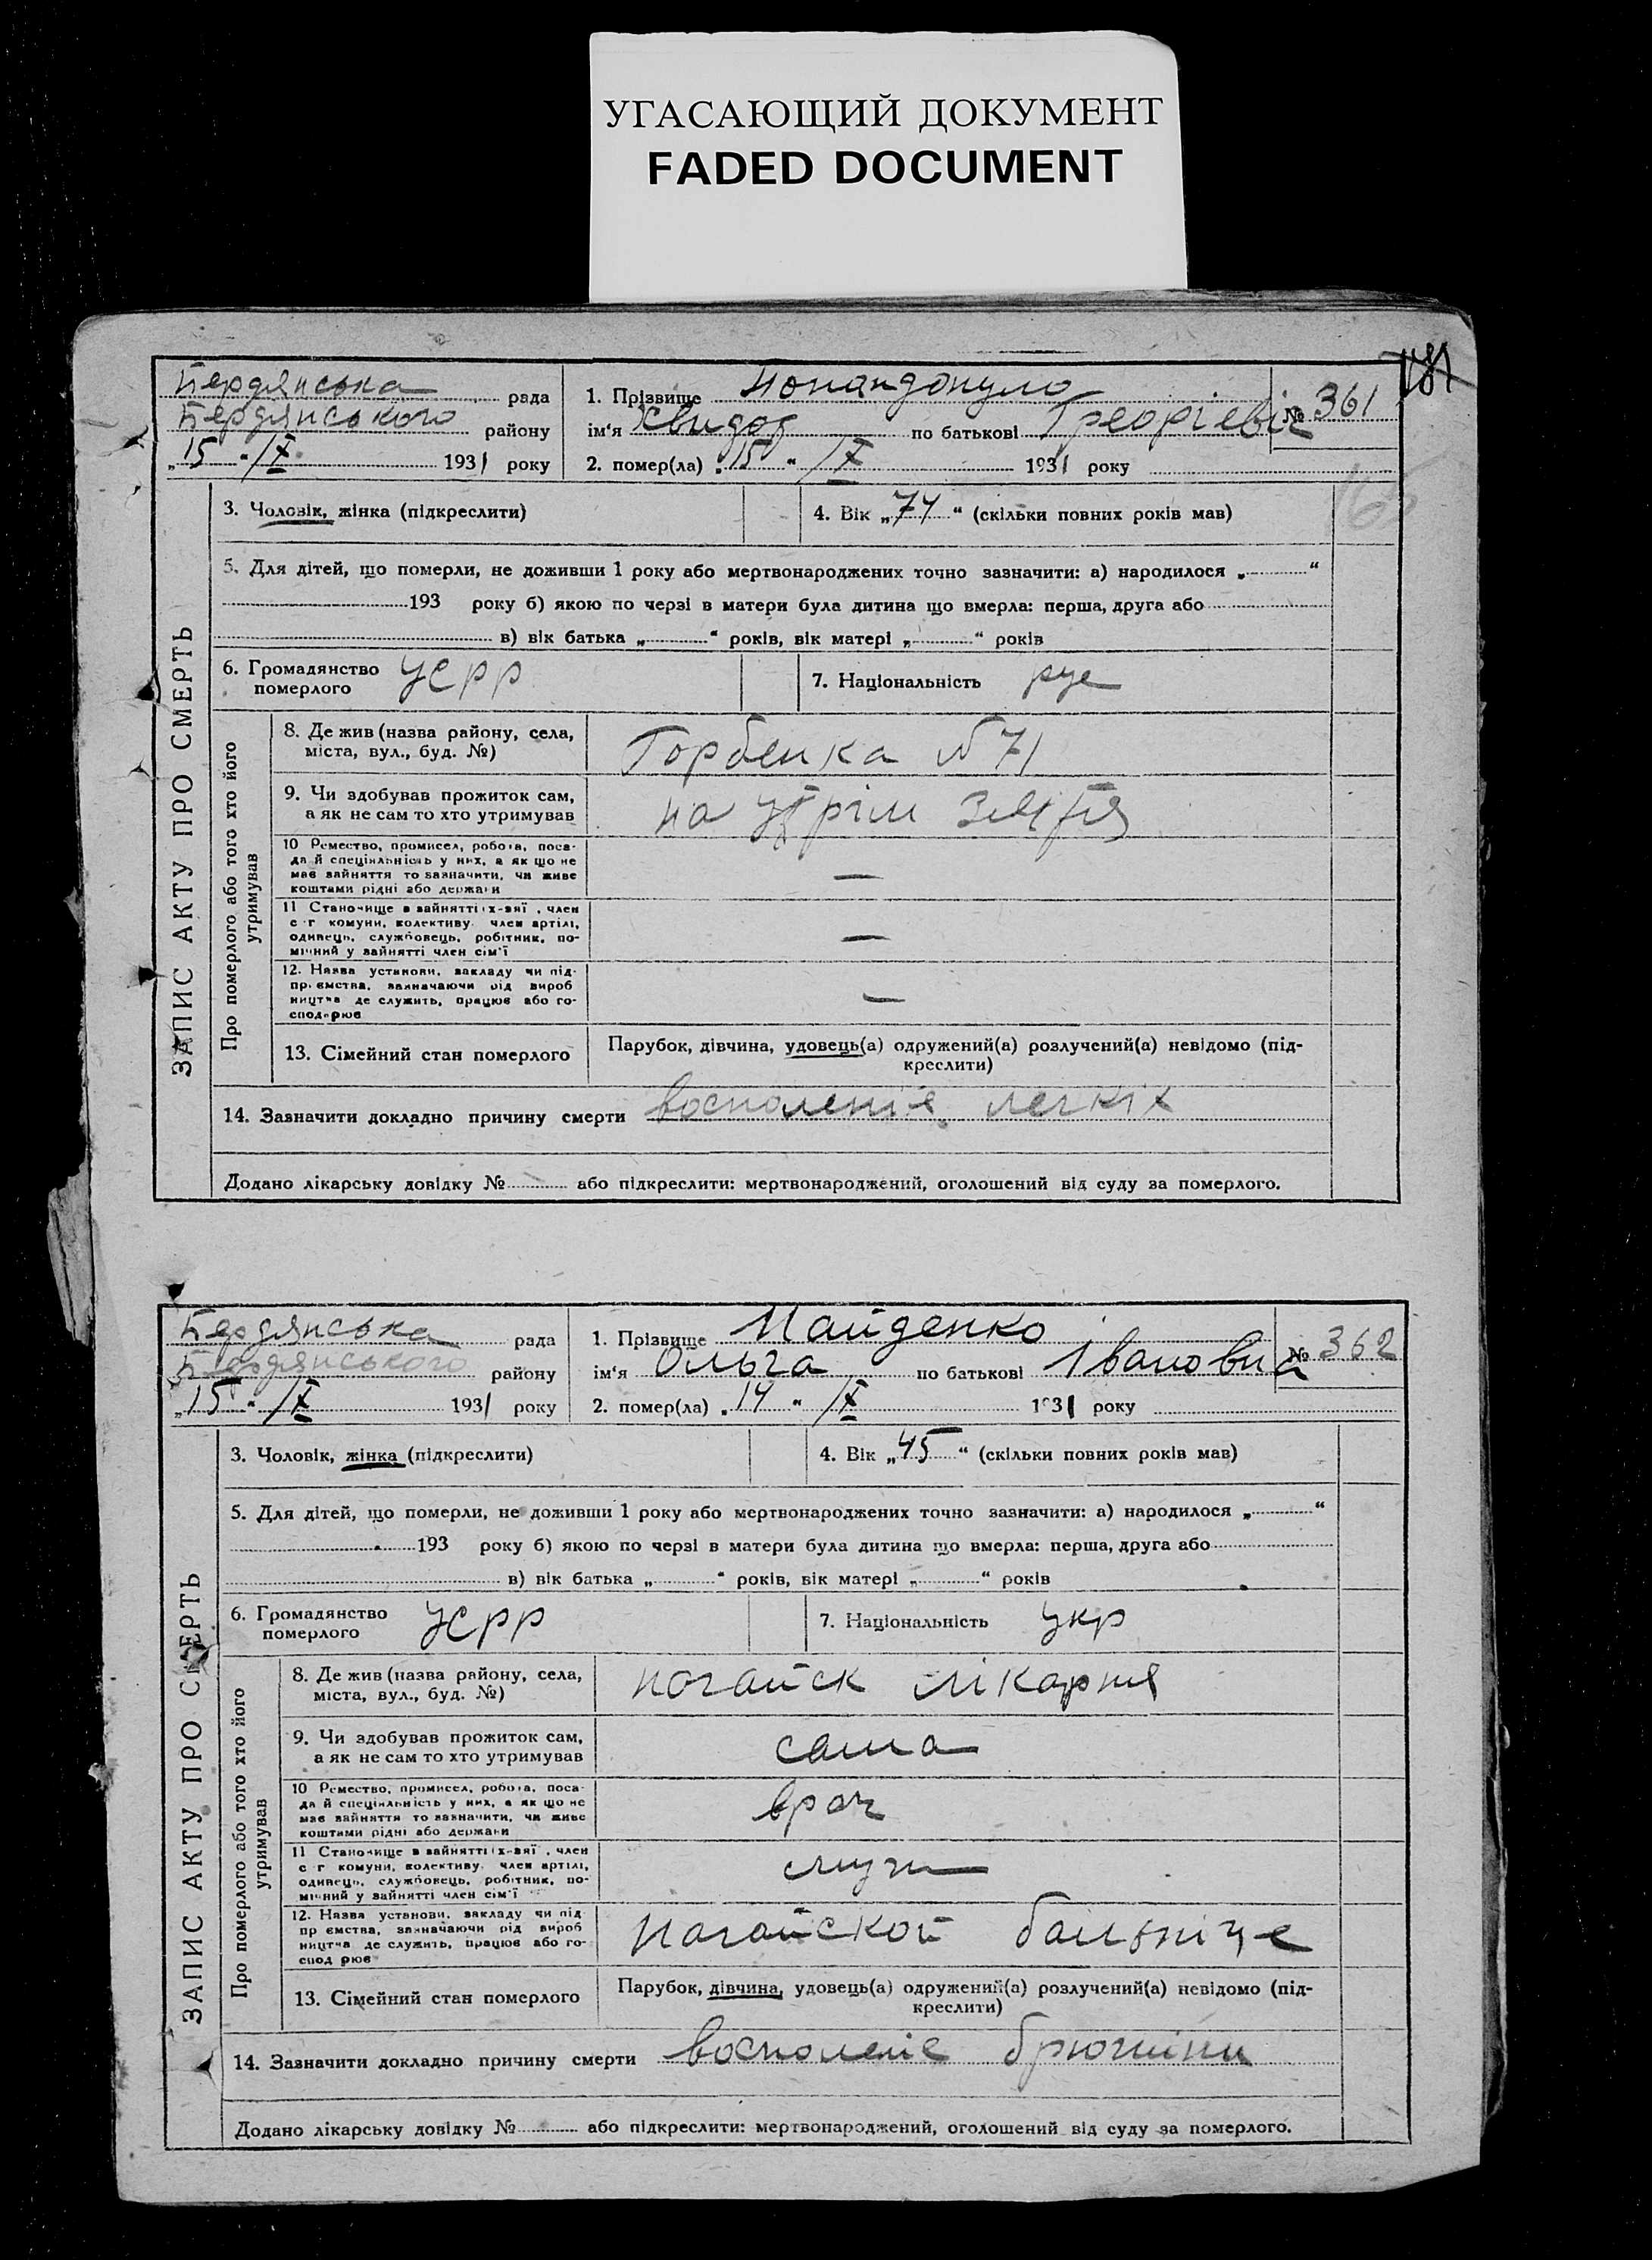 УГАСАЮЩИЙ ДОКУМЕНТ
FADED DOCUMENT
181
Бердянська рада
Бердянського району
„15“ /IX 1931 року
1. Прізвище Попандопуло
ім'я по батькові Греоргієвіч
№ 361
2. помер(ла) „15“ /IX 1931 року
3. Чоловік, жінка (підкреслити)
4. Вік „74“ (скільки повних років мав)
5. Для дітей, що померли, не доживши 1 року або мертвонароджених точно зазначити: а) народилося „ “
193 року б) якою по черзі в матери була дитина що вмерла: перша, друга або
в) вік батька „ “ років, вік матері „ “ років
6. Громадянство померлого УСРР
7. Національність рус
ЗАПИС АКТУ ПРО СМЕРТЬ
Про померлого або того хто його утримував
8. Де жив (назва району, села, міста, вул., буд. №) Горбенка №71
9. Чи здобував прожиток сам, а як не сам то хто утримував на утрім зятя
10 Ремество, промисел, робота, посада й спеціяльність у них, а як що не має зайняття то зазначити, чи живе коштами рідні або держави —
11 Становище в зайнятті: х-вяї, член с-г комуни, колективу, член артілі, одинець, службовець, робітник, помічний у зайнятті член сім'ї —
12. Назва установи, закладу чи підприємства, зазначаючи від виробництва де служить, працює або господарює —
13. Сімейний стан померлого Парубок, дівчина, удовець(а) одружений(а) розлучений(а) невідомо (підкреслити)
14. Зазначити докладно причину смерти воспаленіе легкіх
Додано лікарську довідку № або підкреслити: мертвонароджений, оголошений від суду за померлого.
Бердянська рада
Бердянського району
„15“ /IX 1931 року
1. Прізвище Найденко
ім'я Ольга по батькові Івановна
№ 362
2. помер(ла) „14“ /IX 1931 року
3. Чоловік, жінка (підкреслити)
4. Вік „45“ (скільки повних років мав)
5. Для дітей, що померли, не доживши 1 року або мертвонароджених точно зазначити: а) народилося „ “
193 року б) якою по черзі в матери була дитина що вмерла: перша, друга або
в) вік батька „ “ років, вік матері „ “ років
6. Громадянство померлого УСРР
7. Національність укр
ЗАПИС АКТУ ПРО СМЕРТЬ
Про померлого або того хто його утримував
8. Де жив (назва району, села, міста, вул., буд. №) Ногайск лікарня
9. Чи здобував прожиток сам, а як не сам то хто утримував сама
10 Ремество, промисел, робота, посада й спеціяльність у них, а як що не має зайняття то зазначити, чи живе коштами рідні або держави врач
11 Становище в зайнятті: х-вяї, член с-г комуни, колективу, член артілі, одинець, службовець, робітник, помічний у зайнятті член сім'ї служ
12. Назва установи, закладу чи підприємства, зазначаючи від виробництва де служить, працює або господарює Ногайской больніце
13. Сімейний стан померлого Парубок, дівчина, удовець(а) одружений(а) розлучений(а) невідомо (підкреслити)
14. Зазначити докладно причину смерти воспаленіе брюшіни
Додано лікарську довідку № або підкреслити: мертвонароджений, оголошений від суду за померлого.